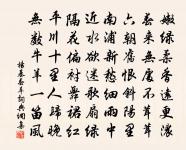 嫩綠柔香遠更濃
春來無處不茸茸
六朝舊恨斜陽裏
南浦新愁細雨中
近水欲迷歌扇綠
隔花偏襯舞裙紅
平川十里人歸晚
無數牛羊一笛風
楊基春草